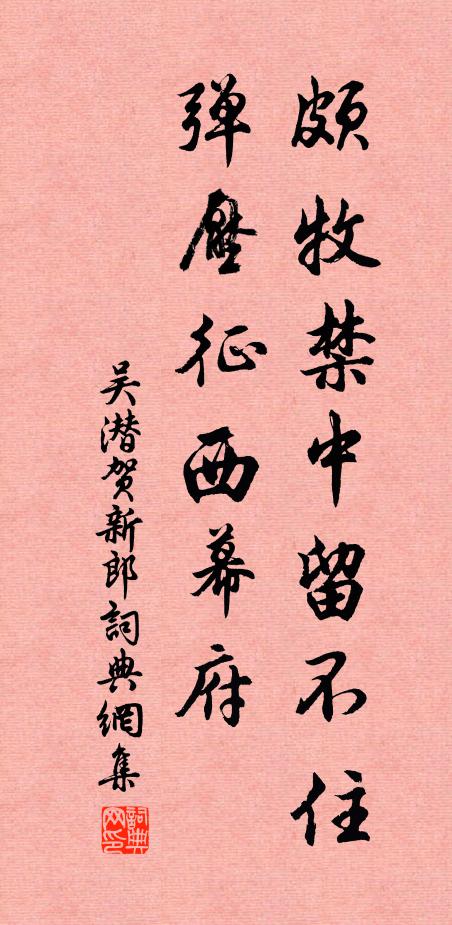 颇牧禁中留不住
弹压征西幕府
吴潜贺新郎詞典網集
詞典网印